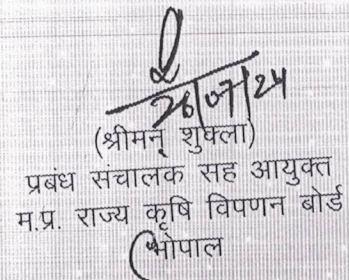 26/07/24
(श्रीमन् शुक्ला)
प्रबंध संचालक सह आयुक्त
म.प्र. राज्य कृषि विपणन बोर्ड
भोपाल